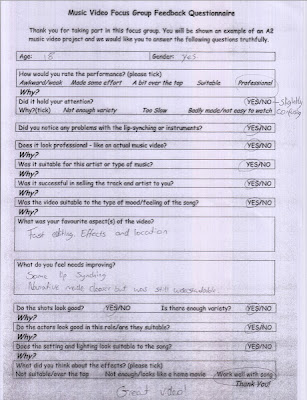 Music Video Focus Group Feedback Questionnaire
Thank you for taking part in this focus group. You will be shown an example of an A2
music video project and we would like you to answer the following questions truthfully.
Age: 18 Gender: yes
How would you rate the performance? (please tick)
Awkward/weak Made some effort A bit over the top Suitable Professional
Why?
Did it hold your attention? YES/NO - slightly
Why?(tick) Not enough variety Too Slow Badly made/not easy to watch confusing
Did you notice any problems with the lip-synching or instruments? YES/NO
Does it look professional - like an actual music video? YES/NO
Why?
Was it suitable for this artist or type of music? YES/NO
Why?
Was it successful in selling the track and artist to you? YES/NO
Why?
Was the video suitable to the type of mood/feeling of the song? YES/NO
Why?
What was your favourite aspect(s) of the video?
Fast editing. Effects and location
What do you feel needs improving?
Some lip synching
Narrative made clearer but was still understandable.
Do the shots look good? YES/NO Is there enough variety? YES/NO
Why?
Do the actors look good in this role/are they suitable? YES/NO
Why?
Does the setting and lighting look suitable to the song? YES/NO
Why?
What did you think about the effects? (please tick)
Not suitable/over the top Not enough/looks like a home movie Work well with song
Thank You!
Great video!